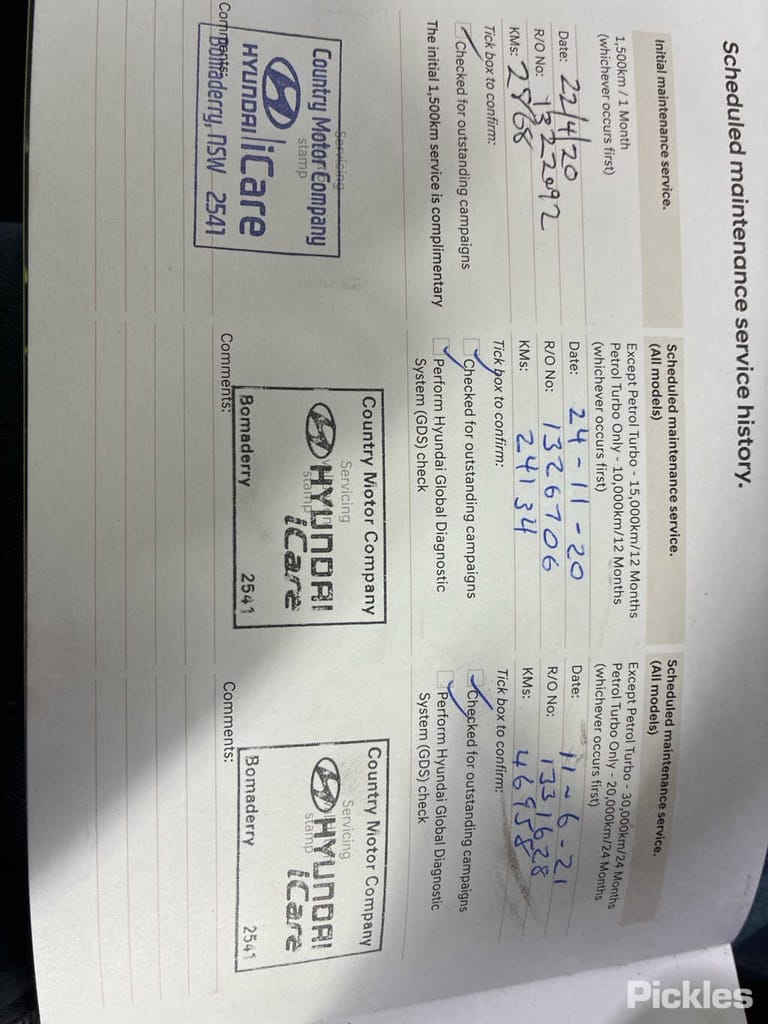 Scheduled maintenance service history.
Initial maintenance service.
1,500km / 1 Month
(whichever occurs first)
Date: 22/4/20
R/O No: 1322092
KMs: 2868
Tick box to confirm:
Checked for outstanding campaigns
The initial 1,500km service is complimentary
Servicing
stamp
Country Motor Company
HYUNDAI iCare
Bomaderry, NSW 2541
Comments:
Scheduled maintenance service.
(All models)
Except Petrol Turbo - 15,000km/12 Months
Petrol Turbo Only - 10,000km/12 Months
(whichever occurs first)
Date: 24-11-20
R/O No: 1326706
KMs: 24134
Tick box to confirm:
Checked for outstanding campaigns
Perform Hyundai Global Diagnostic
System (GDS) check
Country Motor Company
Servicing
stamp
HYUNDAI
iCare
Bomaderry 2541
Comments:
Scheduled maintenance service.
(All models)
Except Petrol Turbo - 30,000km/24 Months
Petrol Turbo Only - 20,000km/24 Months
(whichever occurs first)
Date: 11-6-21
R/O No: 1331628
KMs: 46958
Tick box to confirm:
Checked for outstanding campaigns
Perform Hyundai Global Diagnostic
System (GDS) check
Country Motor Company
Servicing
stamp
HYUNDAI
iCare
Bomaderry 2541
Comments:
Pickles